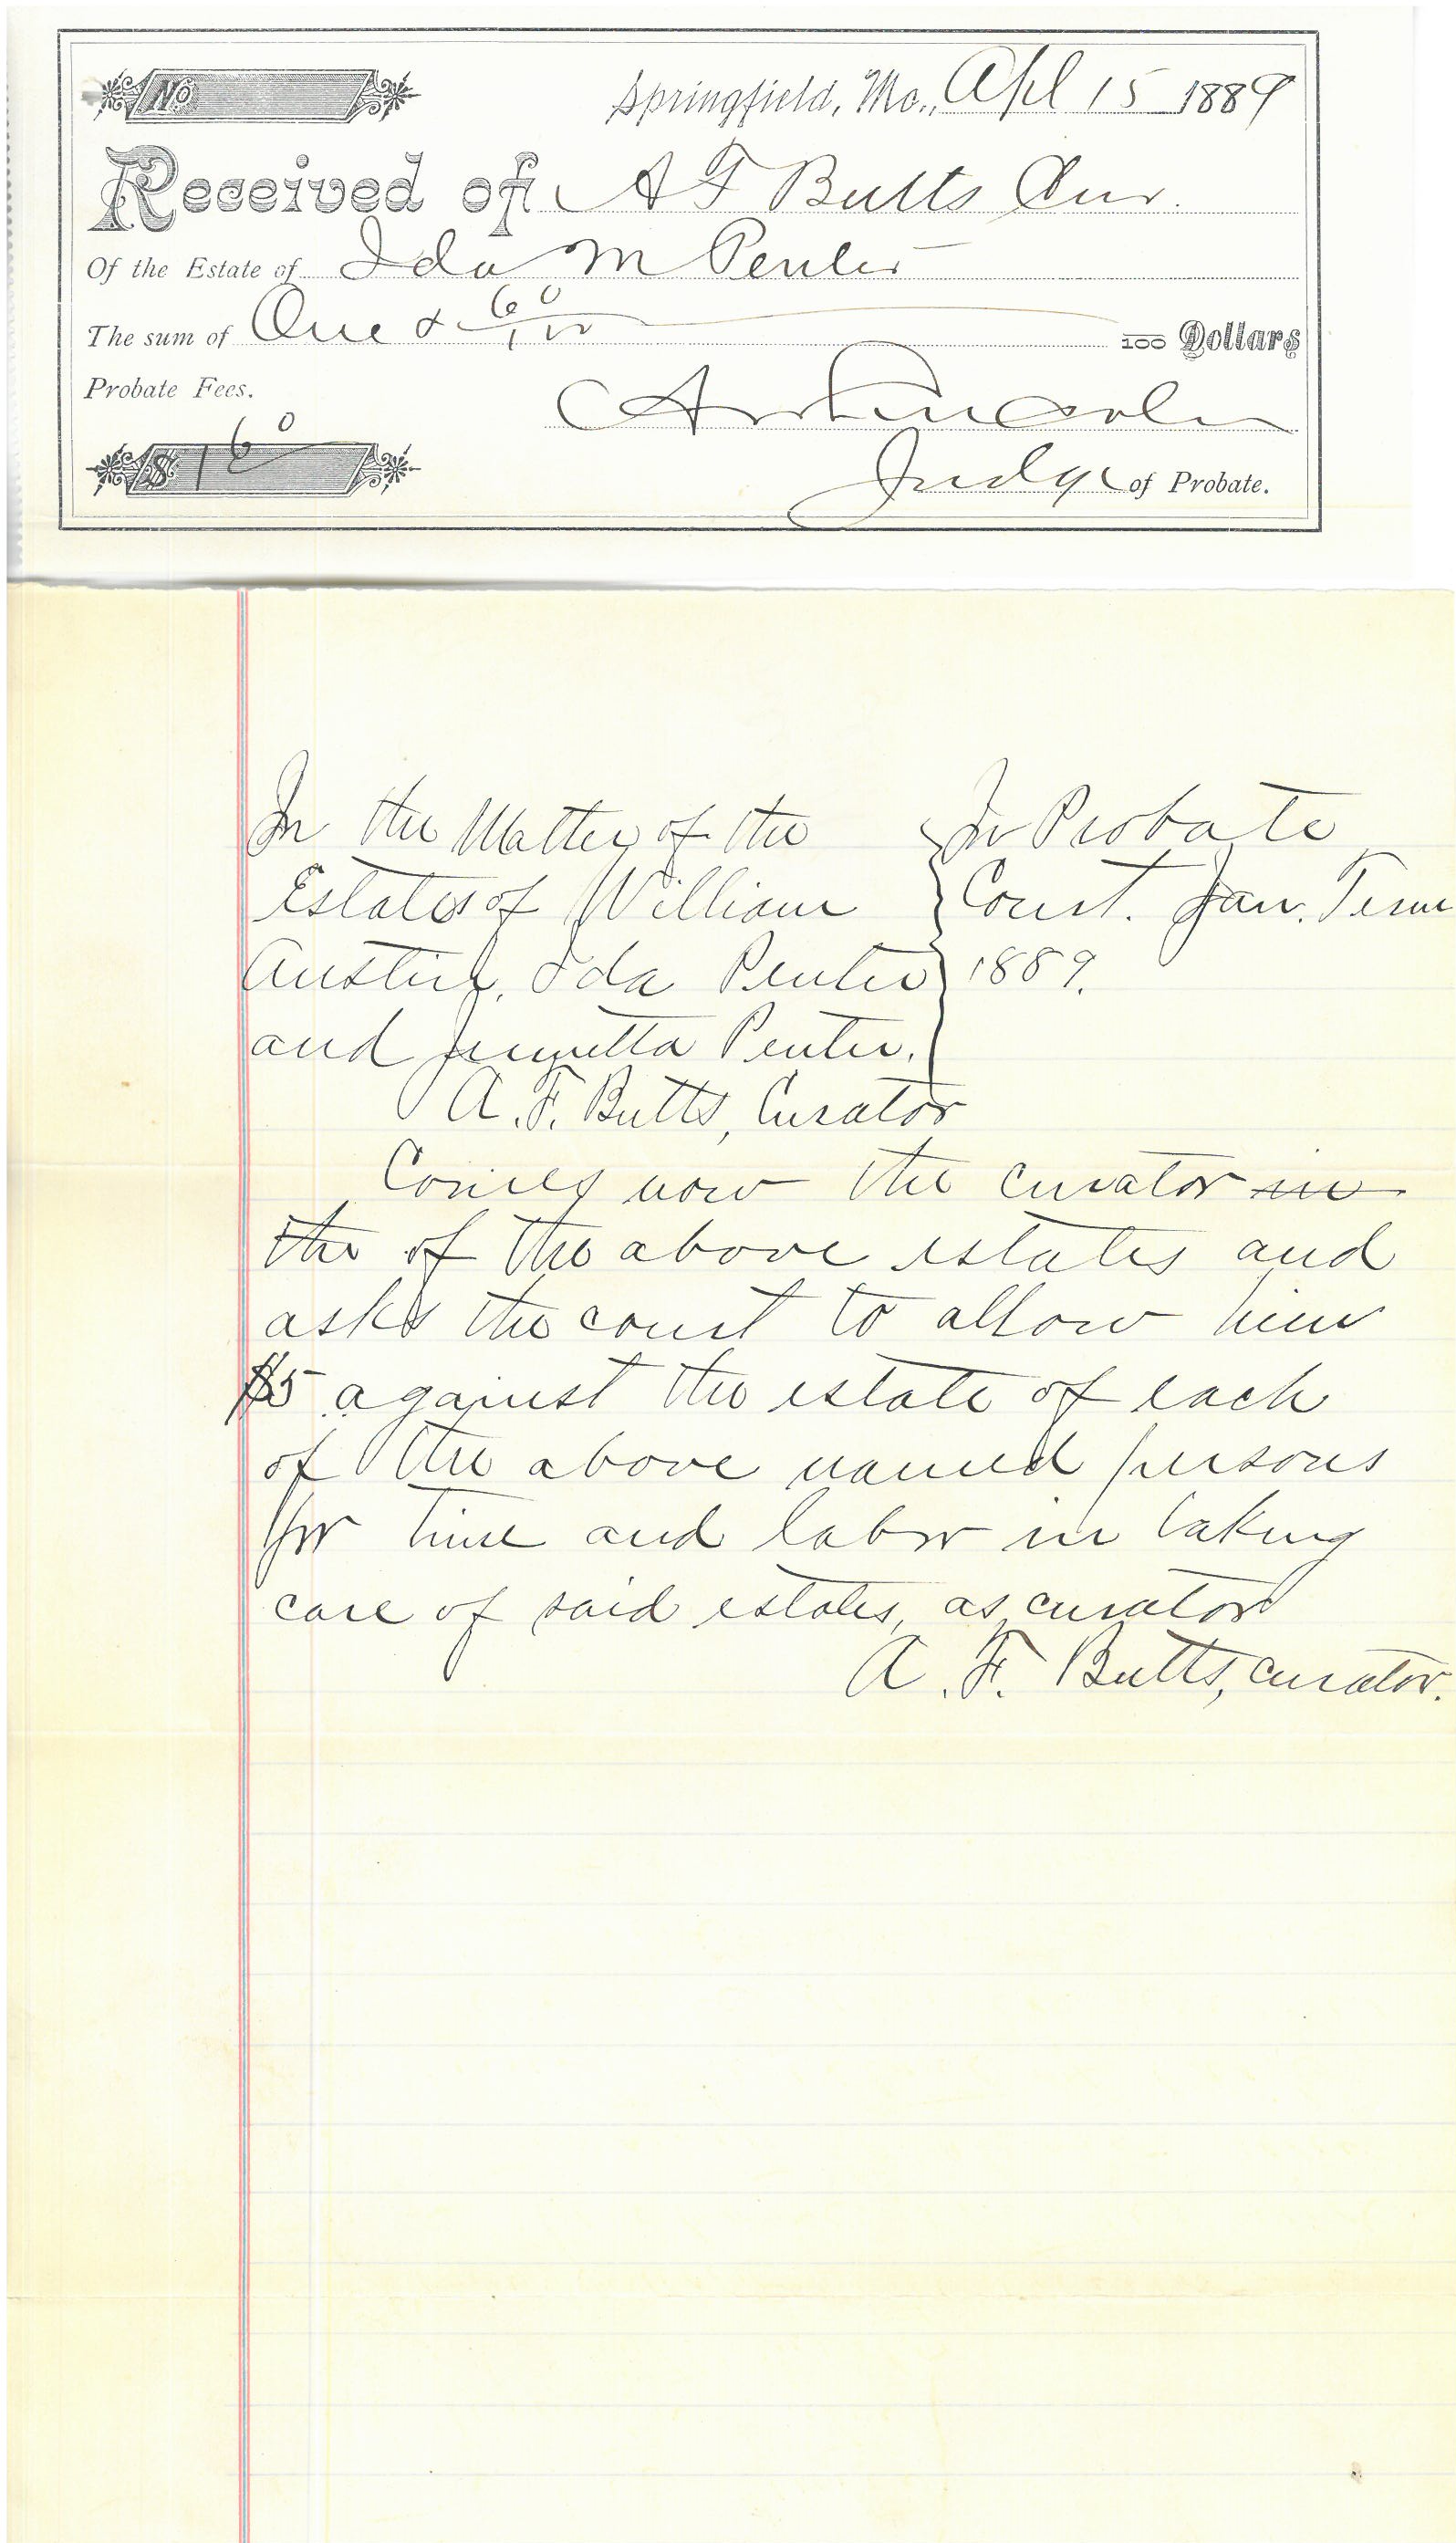 No
Springfield, Mo., Apl 15 1889
Received of A F Butts Cur.
Of the Estate of Ida M Penter
The sum of One & 60/100 100 Dollars
Probate Fees.
Lincoln
$ 1 60
Judge of Probate.
In the Matter of the
Estates of William
Austin, Ida Penter
and Penter.
In Probate
Court. Jan. Term
1889.
A. F. Butts, Curator
Comes now the curator in
the of the above estates and
asks the court to allow him
$5 against the estate of each
of the above named persons
for time and labor in taking
care of said estates, as curator
A. F. Butts, curator.